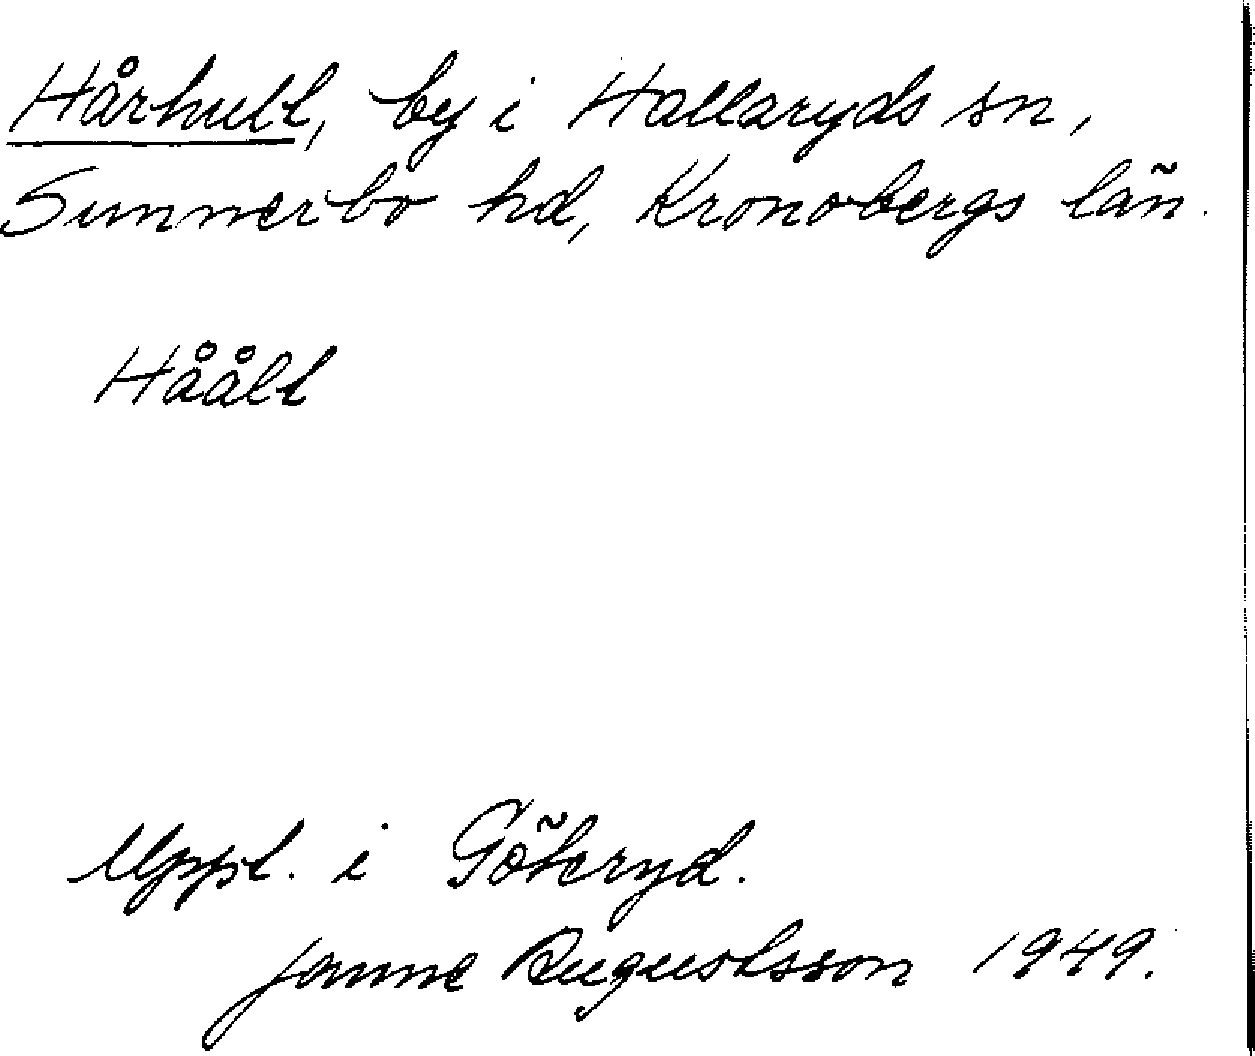 Hårhult, by i Hallaryds sn,
Sunnerbo hd, Kronobergs län.
Håålt
Uppt. i Göteryd.
Janne Augustsson 1949.